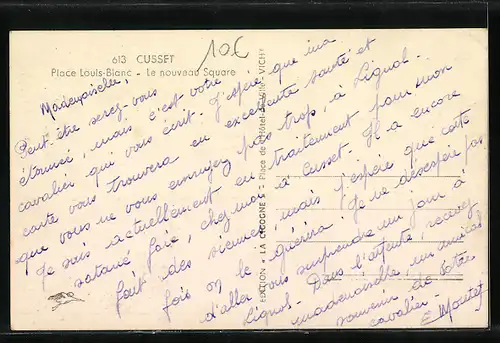 613 CUSSET
Place Louis-Blanc - Le nouveau Square
10€
Mademoiselle,
Peut être serez-vous
étonnée, mais c'est votre
cavalier qui vous écrit. J'espère que ma
carte vous trouvera en excellente santé et
que vous ne vous ennuyez pas trop, à Lignol.
Je suis actuellement en traitement pour mon
satané foie, chez moi à Cusset. Il a encore
fait des siennes, mais j'espère que cette
fois on le guérira. Je ne désespère pas
d'aller vous surprendre un jour à
Lignol. Dans l'attente, recevez
mademoiselle un amical
souvenir de votre
cavalier.
E.
EDITION - LA CIGOGNE - Place de l'Hôtel-de-Ville - VICHY